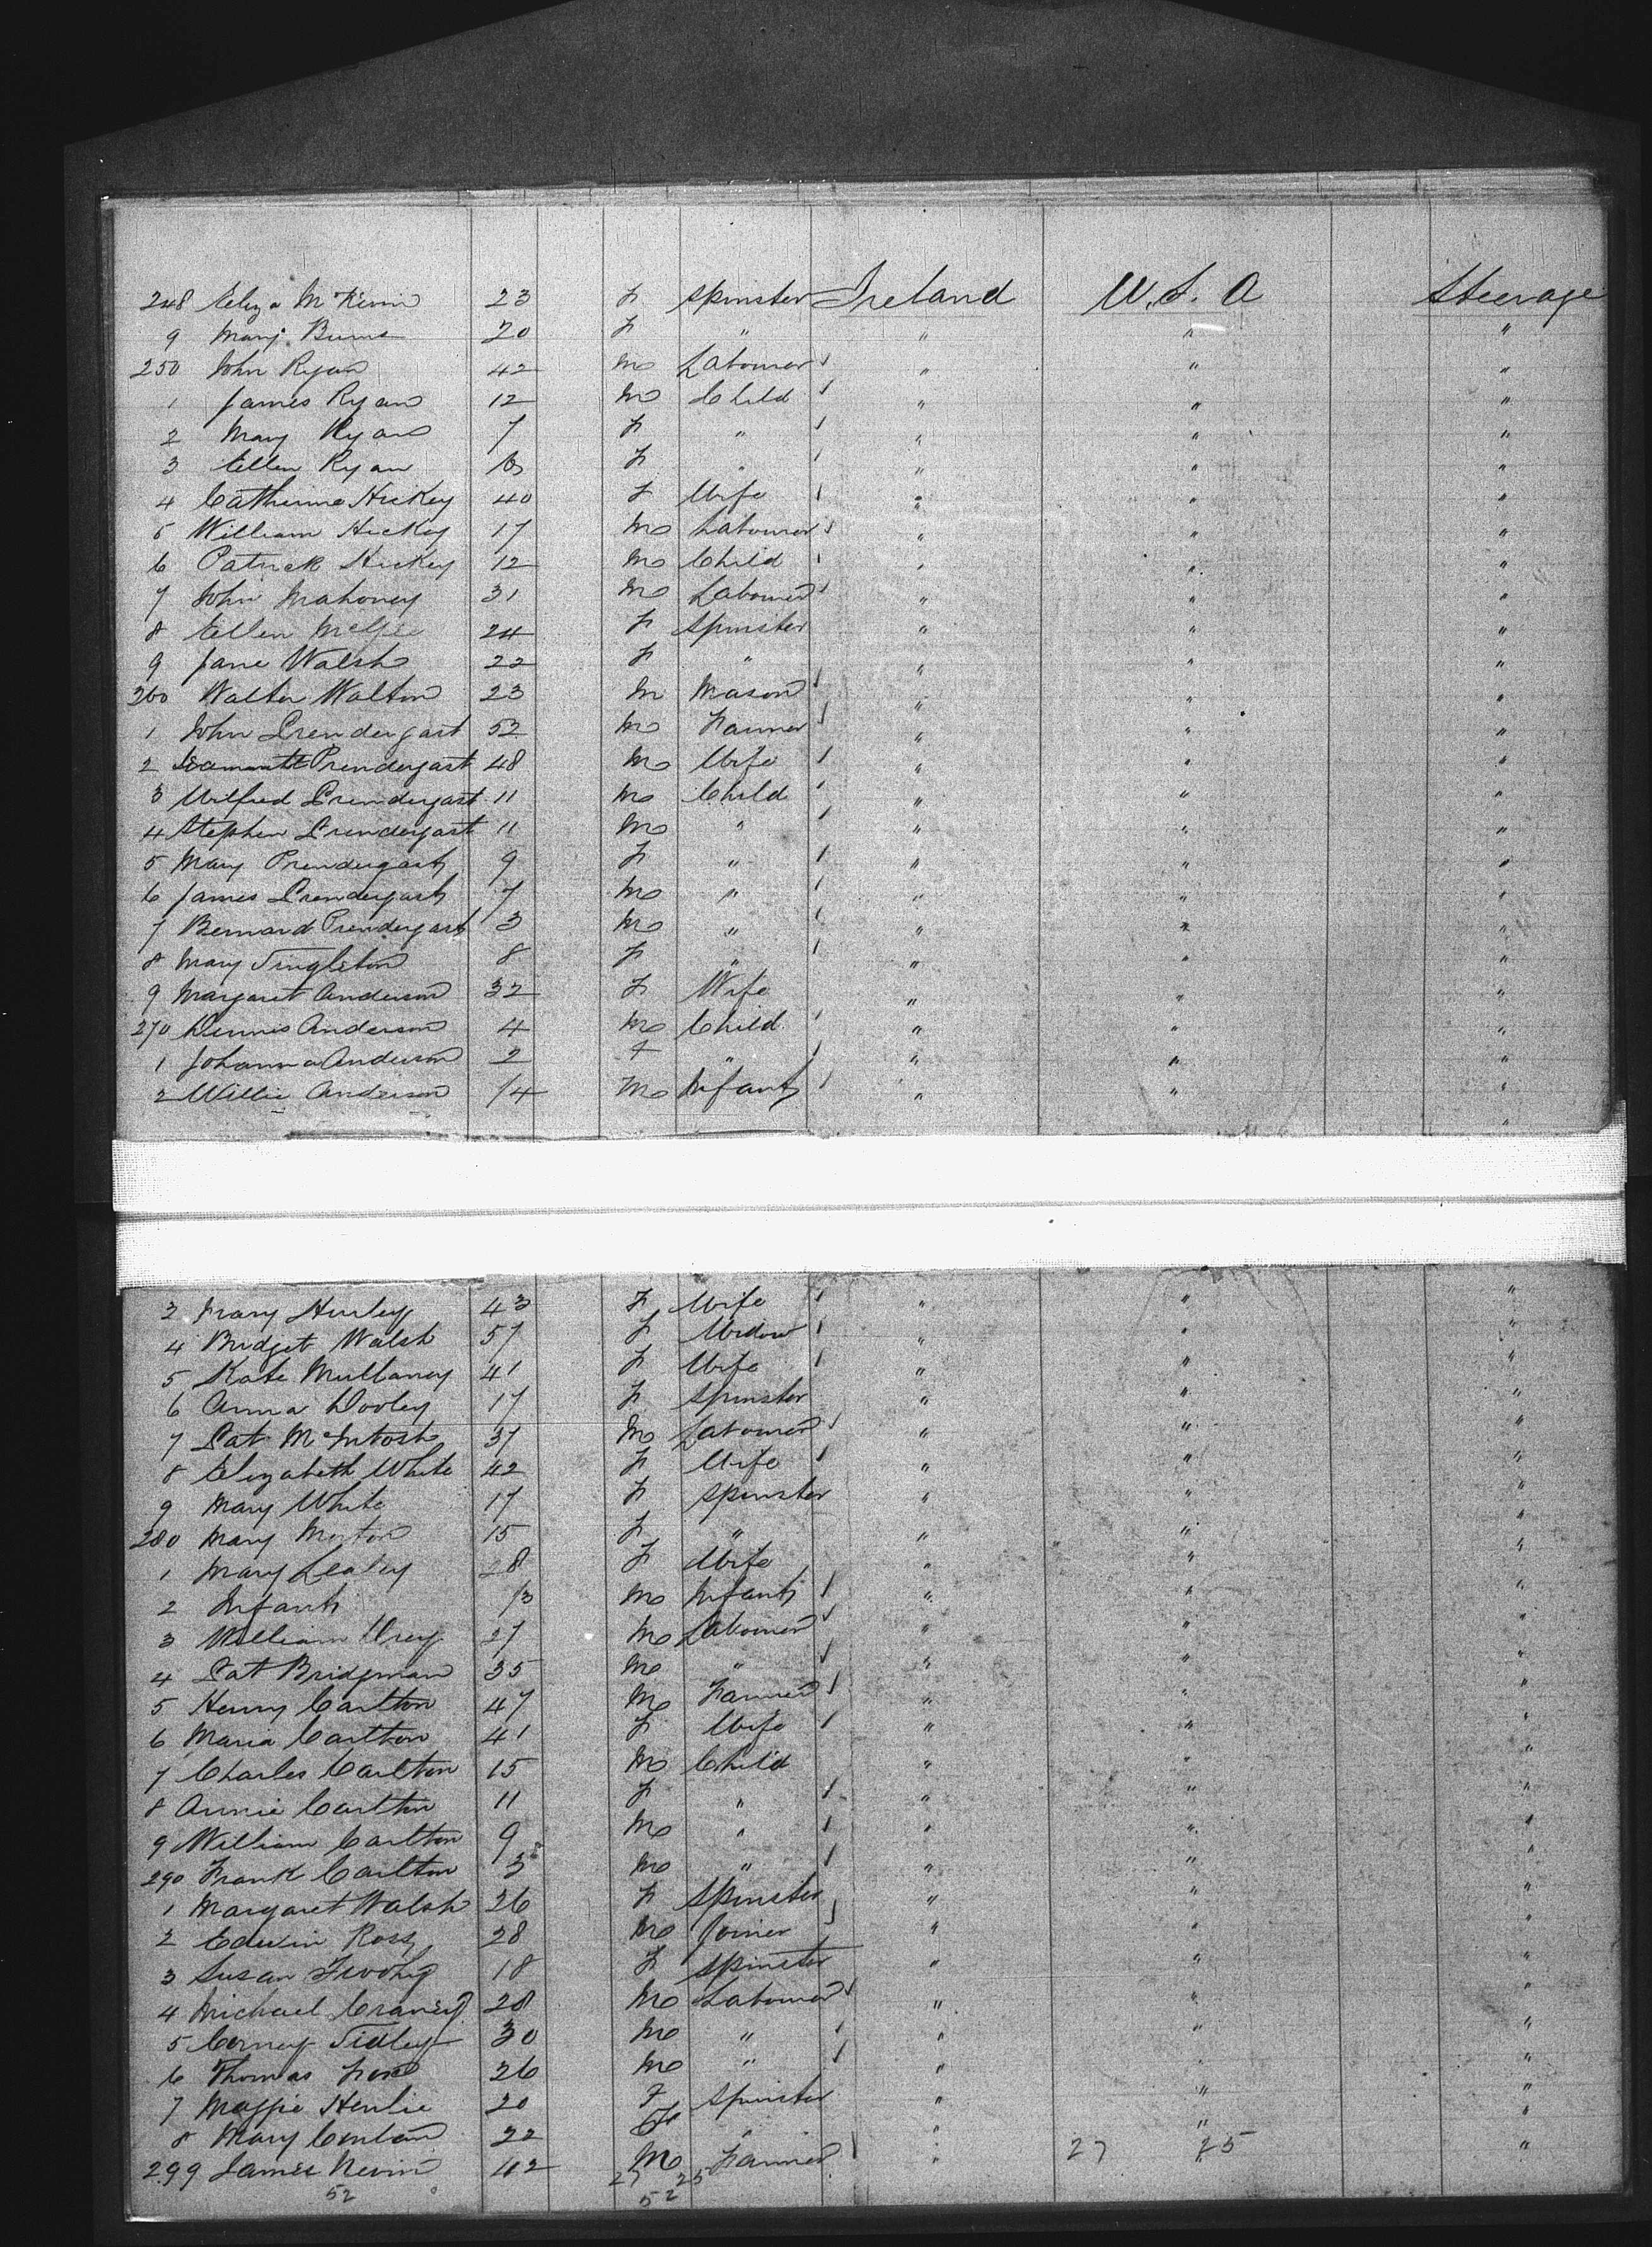 248 Eliza McKevin 23 F Spinster Ireland U.S.A Steerage
9 Mary Burns 20 F " " " "
250 John Ryan 42 M Labourer " " "
1 James Ryan 12 M Child " " "
2 Mary Ryan 7 F " " " "
3 Ellen Ryan F " " " "
4 Catherine Hickey 40 F Wife " " "
5 William Hickey 17 M Labourer " " "
6 Patrick Hickey 12 M Child " " "
7 John Mahoney 31 M Labourer " " "
8 Ellen 24 F Spinster " " "
9 Jane Walsh 22 F " " " "
260 Walter Walton 23 M Mason " " "
1 John Prendergast 52 M Farmer " " "
2 Prendergast 48 M Wife " " "
3 Wilfred Prendergast 11 M Child " " "
4 Stephen Prendergast 11 M " " " "
5 Mary Prendergast 9 F " " " "
6 James Prendergast 7 M " " " "
7 Bernard Prendergast 3 M " " " "
8 Mary Singleton 8 F " " " "
9 Margaret Anderson 32 F Wife " " "
270 Dennis Anderson 4 M Child " " "
1 Johanna Anderson 2 F " " " "
2 Willie Anderson /4 M Infant " " "
3 Mary Hurley 43 F Wife " " "
4 Bridget Walsh 57 F Widow " " "
5 Kate Mullaney 41 F Wife " " "
6 Anna Dooley 17 F Spinster " " "
7 Pat McIntosh 37 M Labourer " " "
8 Elizabeth White 42 F Wife " " "
9 Mary White 17 F Spinster " " "
280 Mary Morton 15 F " " " "
1 Mary Lealey 28 F Wife " " "
2 Infant /3 M Infant " " "
3 William 27 M Labourer " " "
4 Pat Bridgman 35 M " " " "
5 Henry Carlton 47 M Farmer " " "
6 Maria Carlton 41 F Wife " " "
7 Charles Carlton 15 M Child " " "
8 Annie Carlton 11 F " " " "
9 William Carlton 9 M " " " "
290 Frank Carlton 3 M " " " "
1 Margaret Walsh 26 F Spinster " " "
2 Edwin Ross 28 M Joiner " " "
3 Susan 18 F Spinster " " "
4 Michael 28 M Labourer " " "
5 30 M " " " "
6 Thomas 26 M " " " "
7 Maggie Henlie 20 F Spinster " " "
8 Mary Conlan 22 F " " " "
299 James Nevin 42 M Farmer " 27 25 "
52 27 25
52